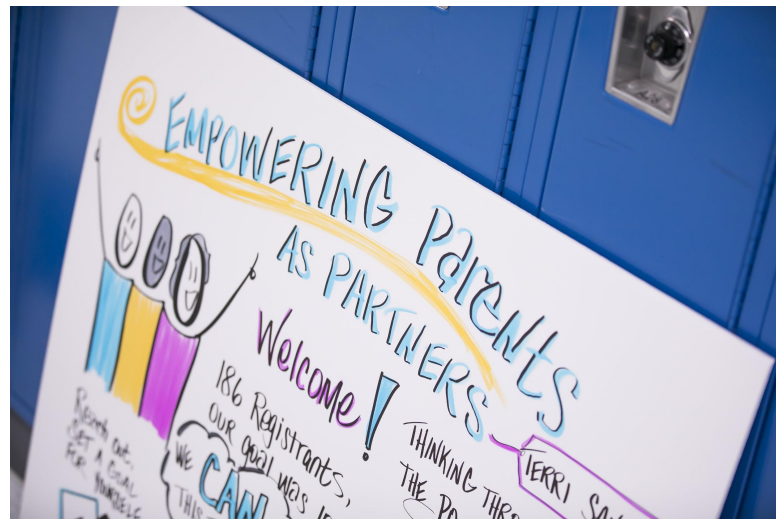 EMPOWERING Parents
AS PARTNERS
Welcome!
186 Registrants,
OUR goal was
Reach out.
SET A GOAL
FOR YOURSELF
WE
CAN
THINKING
THE
TERRI